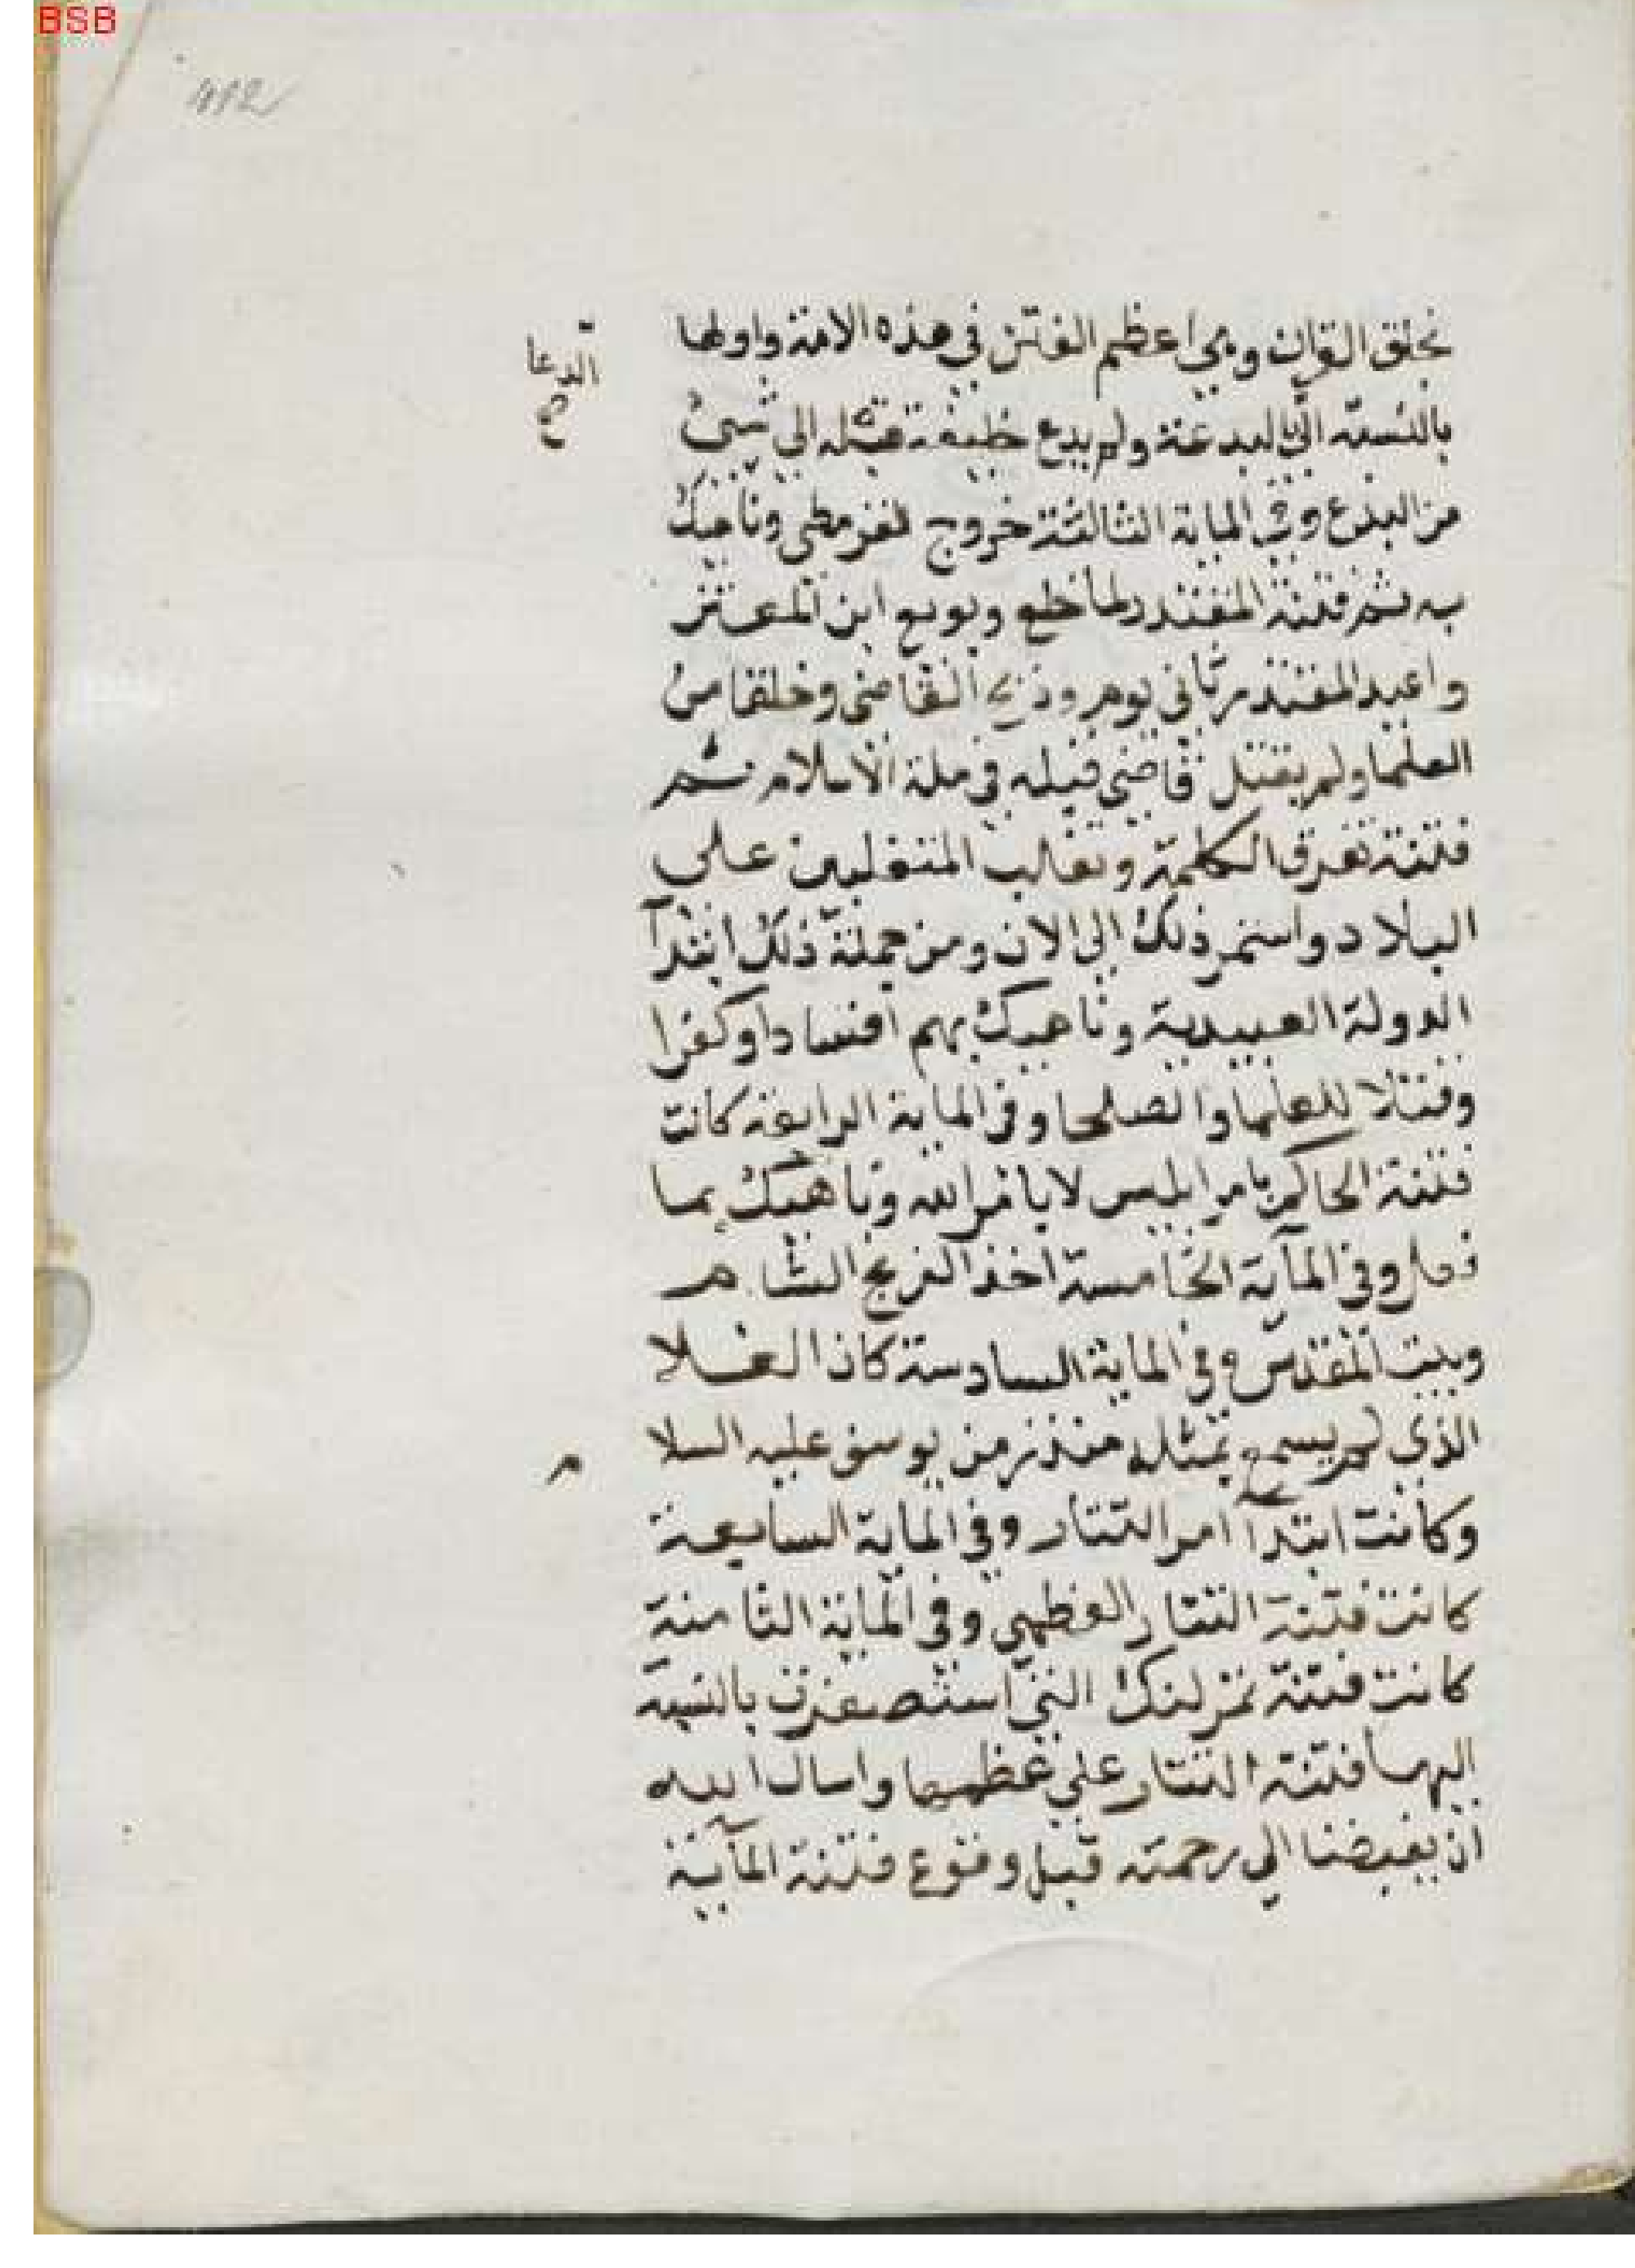 BSB
412
بخلق القران وهي اعظم الفتن في هذه الامة واولها
الدعا
بالنسبة الي البدعة ولم يدع خليفة قبله الي شيئ
صح
من البدع وفي الماية الثالثة خروج القرمطي وناهيك
به ثم فتنة المقتدر لما خلع وبويع ابن المعتز
واعيد المقتدر ثاني يوم وذبح القاضي وخلقا من
العلما ولم يقتل قاضي قبله في ملة الاسلام ثم
فتنة تفرق الكلمة وتغلب المتغلبين علي
البلاد واستمر ذلك الي الان ومن جملة ذلك ابتدآ
الدولة العبيدية وناهيك بهم افسادا وكفرا
وقتلا للعلما والصلحا وفي الماية الرابعة كانت
فتنة الحاكم بامر ابليس لا بامر الله وناهيك بما
فعل وفي المآية الخامسة اخذ الفرنج الشام
وبيت المقدس وفي الماية السادسة كان الغلا
الذي لم يسمع بمثله منذ زمن يوسف عليه السلام
وكانت ابتدآ امر التتار وفي الماية السابعة
كانت فتنة التتار العظمي وفي الماية الثامنة
كانت فتنة تمرلنك التي استصغرت بالنسبة
اليها فتنة التتار علي عظمها واسال الله
ان يقبضنا الي رحمته قبل وقوع فتنة المآية